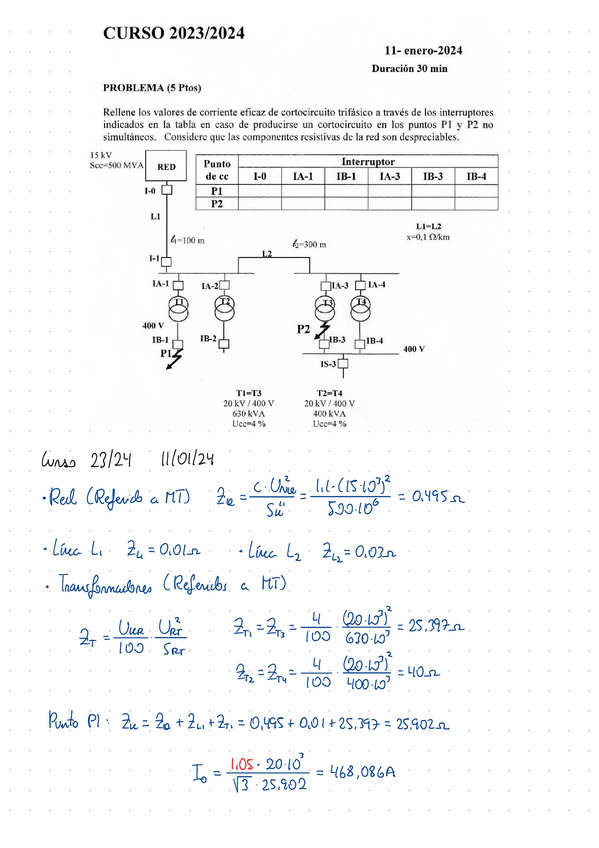 CURSO 2023/2024
11- enero-2024
Duración 30 min
PROBLEMA (5 Ptos)
Rellene los valores de corriente eficaz de cortocircuito trifásico a través de los interruptores
indicados en la tabla en caso de producirse un cortocircuito en los puntos P1 y P2 no
simultáneos. Considere que las componentes resistivas de la red son despreciables.
15 kV
Scc=500 MVA
RED
Punto de cc
Interruptor
I-0 IA-1 IB-1 IA-3 IB-3 IB-4
P1
P2
I-0
L1
L1=L2
x=0,1 Ω/km
ℓ1=100 m
ℓ2=300 m
L2
I-1
IA-1
IA-2
IA-3
IA-4
T1
T2
T3
T4
400 V
P2
IB-1
IB-2
IB-3
IB-4
P1
400 V
IS-3
T1=T3
20 kV / 400 V
630 kVA
Ucc=4 %
T2=T4
20 kV / 400 V
400 kVA
Ucc=4 %
Curso 23/24 11/01/24
• Red (Referido a MT) ZQ = c·Un² / Sk'' = 1,1·(15·10³)² / 500·10⁶ = 0,495 Ω
• Línea L1 ZL1 = 0,01 Ω • Línea L2 ZL2 = 0,02 Ω
• Transformadores (Referidos a MT)
ZT = UKR/100 · URT²/SRT
ZT1 = ZT3 = 4/100 · (20·10³)²/630·10³ = 25,397 Ω
ZT2 = ZT4 = 4/100 · (20·10³)²/400·10³ = 40 Ω
Punto P1: Zk = ZQ + ZL1 + ZT1 = 0,495 + 0,01 + 25,397 = 25,902 Ω
I0 = 1,05 · 20·10³ / √3 · 25,902 = 468,086 A